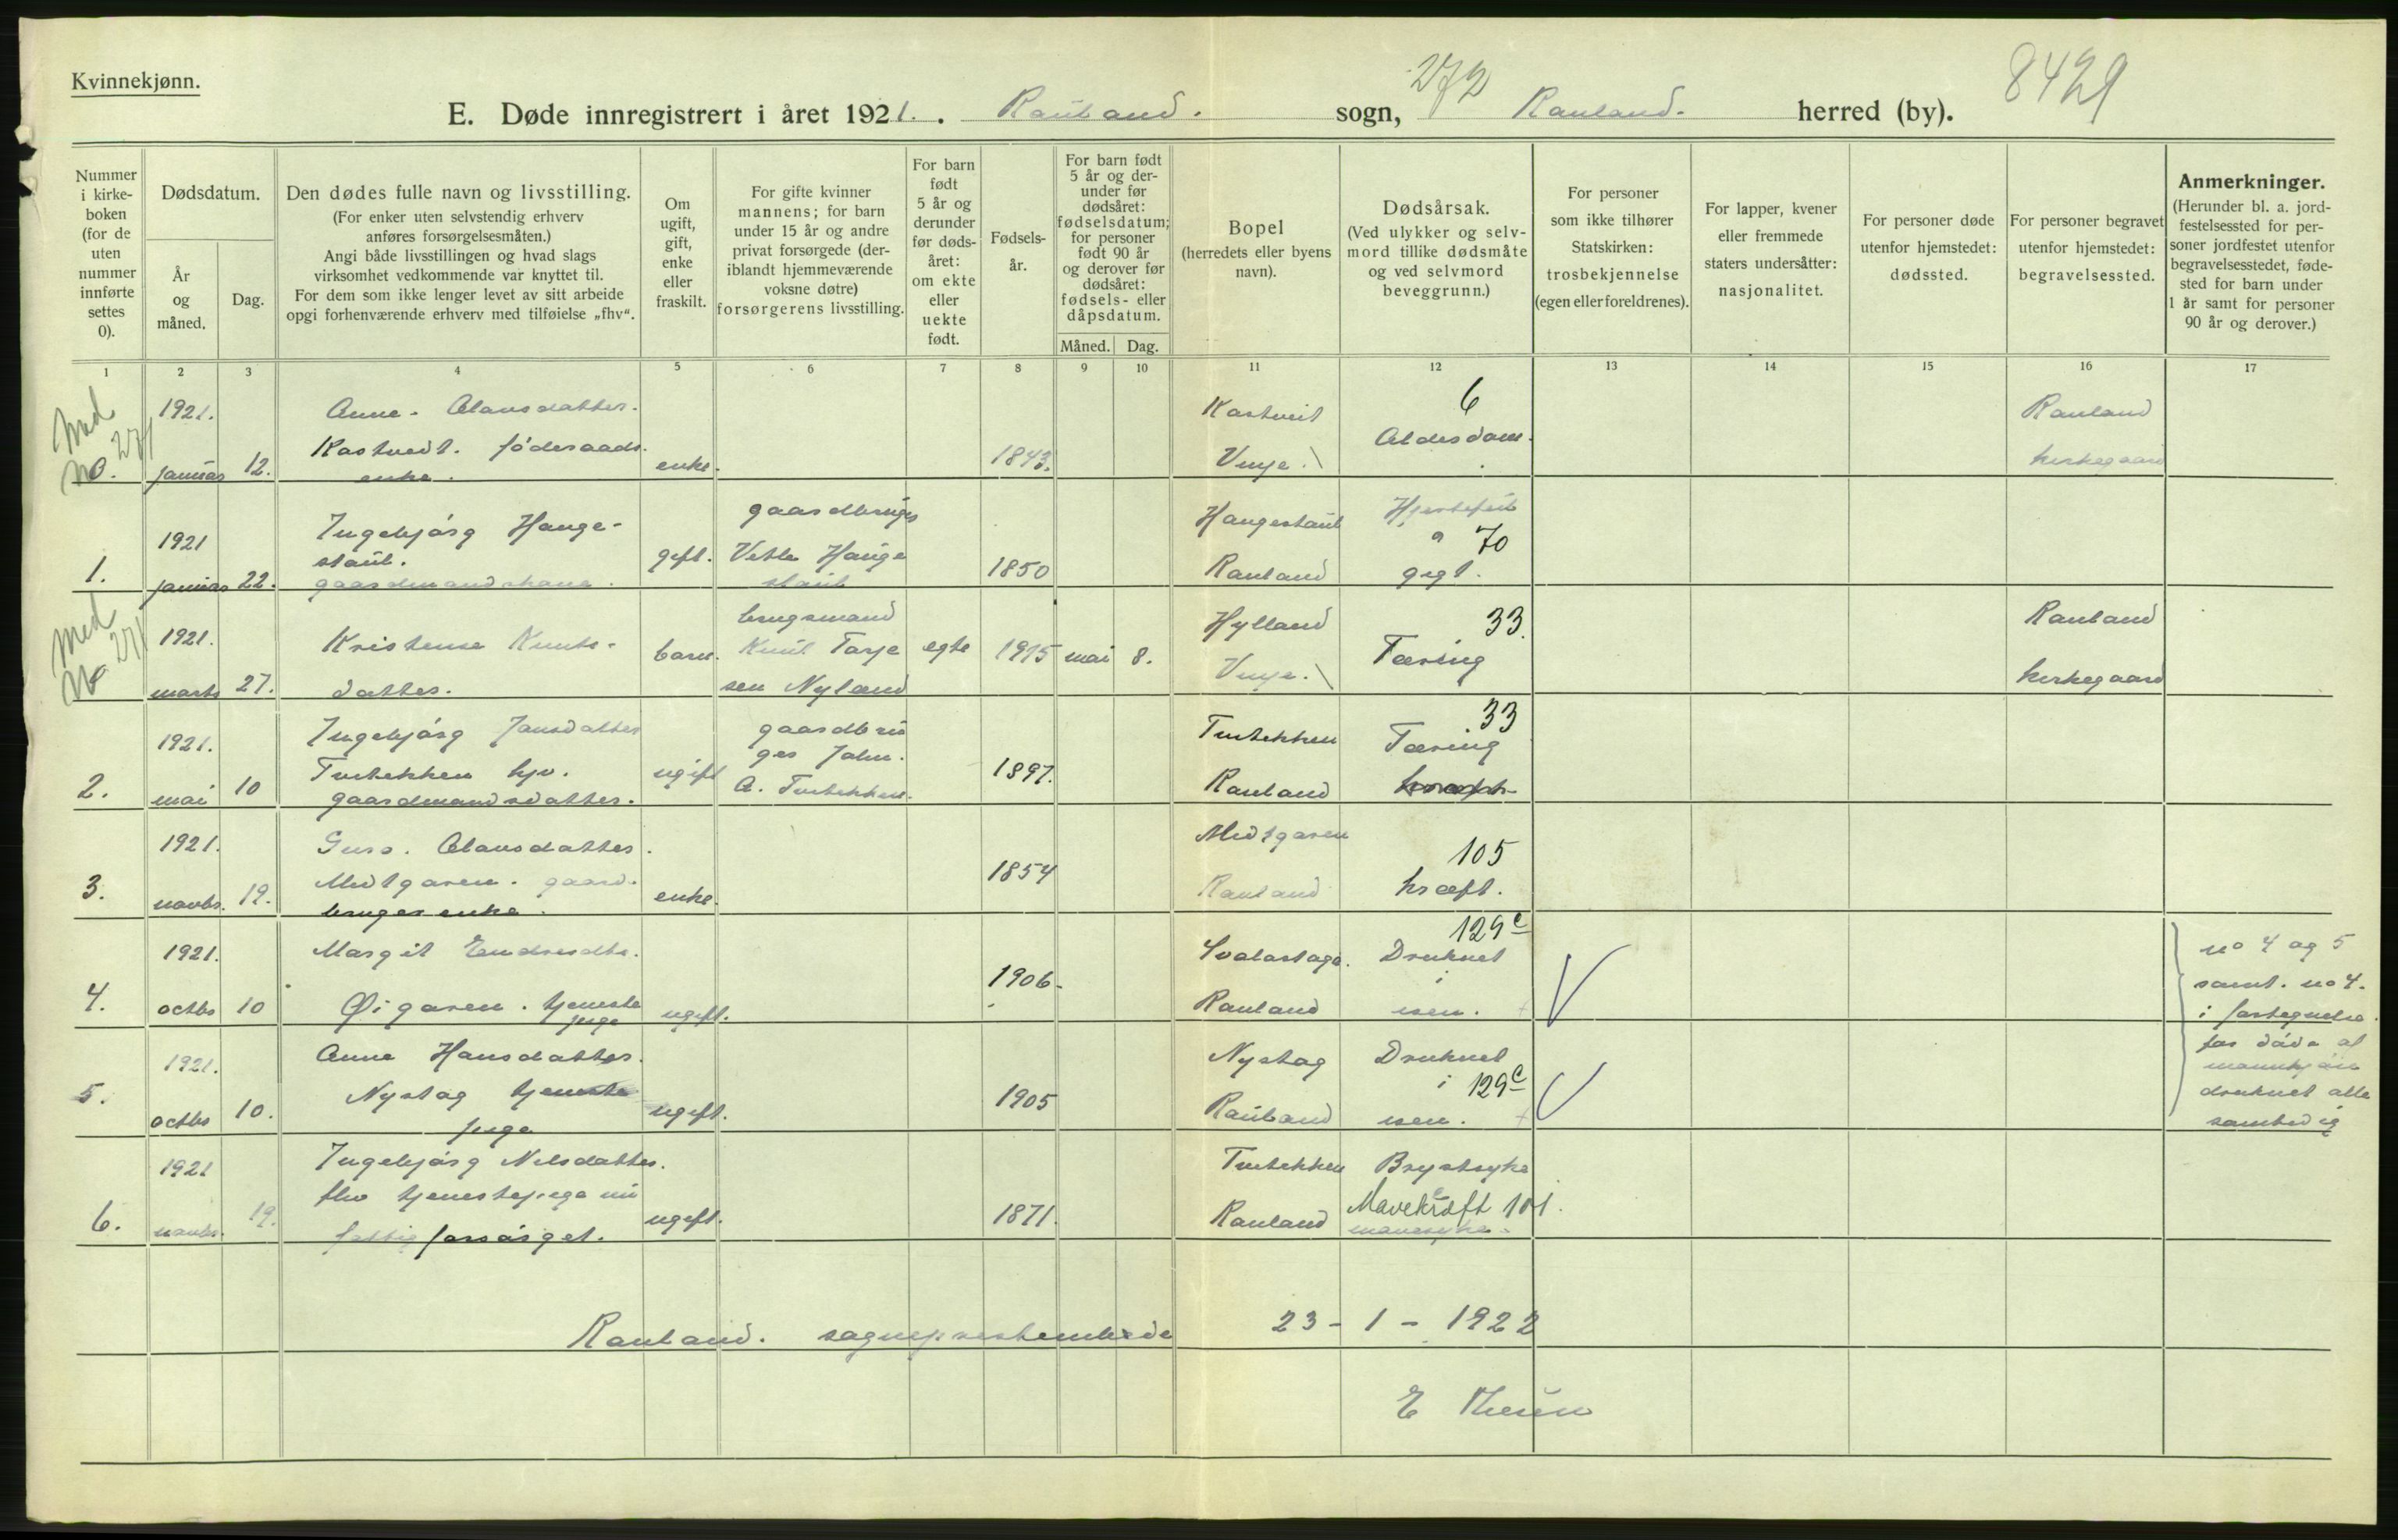 Kvinnekjønn.
272
8429
E. Døde innregistrert i året 1921. Rauland. sogn, Rauland. herred (by).
Nummer i kirke- boken (for de uten nummer innførte settes 0).
Dødsdatum.
År og måned.
Dag.
Den dødes fulle navn og livsstilling.
(For enker uten selvstendig erhverv
anføres forsørgelsesmåten.)
Angi både livsstillingen og hvad slags
virksomhet vedkommende var knyttet til.
For dem som ikke lenger levet av sitt arbeide
opgi forhenværende erhverv med tilføielse „fhv“.
Om ugift, gift, enke eller fraskilt.
For gifte kvinner
mannens; for barn
under 15 år og andre
privat forsørgede (der-
iblandt hjemmeværende
voksne døtre)
forsørgerens livsstilling.
For barn født 5 år og derunder før døds- året: om ekte eller uekte født.
Fødsels- år.
For barn født
5 år og der-
under før
dødsåret:
fødselsdatum;
for personer
født 90 år
og derover før
dødsåret:
fødsels- eller
dåpsdatum.
Måned. Dag.
Bopel
(herredets eller byens
navn).
Dødsårsak.
(Ved ulykker og selv-
mord tillike dødsmåte
og ved selvmord
beveggrunn.)
For personer
som ikke tilhører
Statskirken:
trosbekjennelse
(egen eller foreldrenes).
For lapper, kvener
eller fremmede
staters undersåtter:
nasjonalitet.
For personer døde
utenfor hjemstedet:
dødssted.
For personer begravet
utenfor hjemstedet:
begravelsessted.
Anmerkninger.
(Herunder bl. a. jord-
festelsessted for per-
soner jordfestet utenfor
begravelsesstedet, føde-
sted for barn under
1 år samt for personer
90 år og derover.)
1 2 3 4 5 6 7 8 9 10 11 12 13 14 15 16 17
Med 271
No.
1921. Anne. Olausdatter. Kastveit 6 Rauland
januar 12. Kastvedt. föderaads enke. 1843. Vinje. Alderdom. kirkegaard
enke.
1921 Ingebjörg Hauge- gaardbruger Haugestaul Hjertefeil
staul. gift. Vetle Hauge 1850 o 70
1. januar 22. gaardmandskone. staul Rauland gigt.
Med 271
No
1921. Kristense Knuts- barn. brugsmand Hylland 33. Rauland
Knut Tarje egte 1915 mai 8. Tæring
marts 27. datter. sen Nyland Vinje. kirkegaard
1921. Ingebjörg Jonsdatter gaardbru Tveitekken 33
ger John. 1897. Tæring
2. mai 10 Tveitekken hjv. ugift A. Tveitekken. Rauland
gaardmandsdatter.
1921. Guro. Olausdatter. 1854 Midtgaren 105
3. novbr. 19. Midtgaren. gaard- enke. Rauland kræft.
bruger enke.
1921. Margit Eendresdtr. 1906. Svalastoga. 129c Druknet
i
4. octbr 10 Øigaren. tjeneste ugift. Rauland isen.
pige
1921. Anne Hansdatter. Nystog Druknet
i 129c
5. octbr 10. Nystog tjeneste ugift. 1905 Rauland isen.
pige
no 4 og 5
samt. no 4.
i fortegnelse
for döde af
mannkjön
druknet alle
samtidig
1921 Ingebjörg Nilsdatter. Tveitekken Brystsyke
fhv tjenestepige nu
6. novbr. 19. fattig forsörget. ugift. 1871. Rauland Mavekræft 101.
mavesyke.
Rauland. sogneprestembede 23 - 1 - 1922